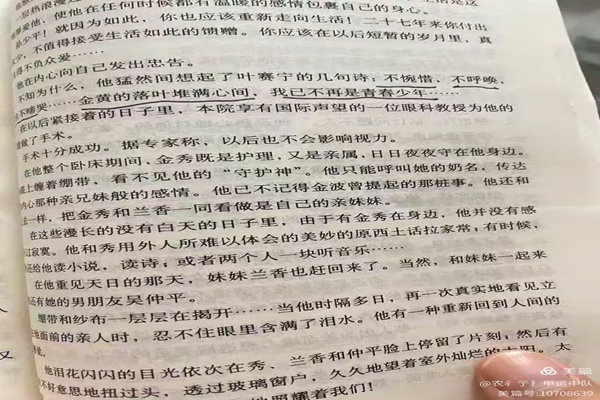 热浪漫
情爱他,使他在任何时候都有温暖的感情包裹自己的身心。
孙少平!就因为如此,你也应该重新走向生活!二十七年来你付出
太少,不值得接受生活如此的馈赠。你应该在以后短暂的岁月里,真
得不负众爱……
他在内心向自己发出忠告。
不知为什么,他猛然间想起了叶赛宁的几句诗:不惋惜,不呼唤,
不啼哭……金黄的落叶堆满心间,我已不再是青春少年……
在以后紧接着的日子里,本院享有国际声望的一位眼科教授为他的
做了手术。
手术十分成功。据专家称,以后也不会影响视力。
在他整个卧床期间,金秀既是护理,又是亲属,日日夜夜守在他身边。
上缠着绷带,看不见他的“守护神”。他只能呼叫她的奶名,传达
内心那种亲兄妹般的感情。他已不记得金波曾提起的那桩事。他还和
一样,把金秀和兰香一同看做是自己的亲妹妹。
在这些漫长的没有白天的日子里,由于有金秀在身边,他并没有感
寂寞。他和秀用外人所难以体会的美妙的原西土话拉家常;有时候,
还给他读小说,读诗;或者两个人一块听音乐……
在他重见天日的那天,妹妹兰香也赶回来了。当然,和妹妹一起来
还有她的男朋友吴仲平。
绷带和纱布一层层在揭开……当他时隔多日,再一次真实地看见立
在他面前的亲人时,忍不住眼里含满了泪水。他有一种重新回到人间的
他泪花闪闪的目光依次在秀、兰香和仲平脸上停留了片刻;然后有
不好意思地扭过头,透过玻璃窗户,久久地望着室外灿烂的太阳。太
地照耀着我们!
美篇
美篇号:10708639